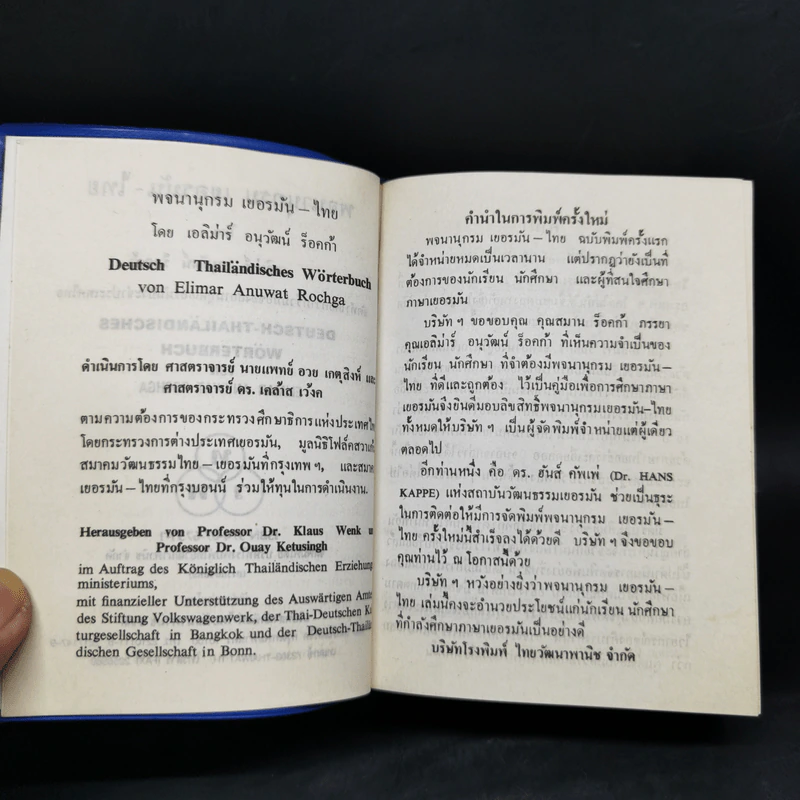 พจนานุกรม เยอรมัน – ไทย
โดย เอลิม่าร์ อนุวัฒน์ ร็อคก้า
Deutsch Thailändisches Wörterbuch
von Elimar Anuwat Rochga
ดำเนินการโดย ศาสตราจารย์ นายแพทย์ อวย เกตุสิงห์ และ
ศาสตราจารย์ ดร. เคล้าส เว้งค
ตามความต้องการของกระทรวงศึกษาธิการแห่งประเทศไทย
โดยกระทรวงการต่างประเทศเยอรมัน, มูลนิธิโฟล์คสวาเก้น
สมาคมวัฒนธรรมไทย – เยอรมันที่กรุงเทพฯ, และสมาค
เยอรมัน – ไทยที่กรุงบอนน์ ร่วมให้ทุนในการดำเนินงาน.
Herausgeben von Professor Dr. Klaus Wenk u
Professor Dr. Ouay Ketusingh
im Auftrag des Königlich Thailändischen Erziehung
ministeriums,
mit finanzieller Unterstützung des Auswärtigen Amte
des Stiftung Volkswagenwerk, der Thai-Deutschen Ku
turgesellschaft in Bangkok und der Deutsch-Thailä
dischen Gesellschaft in Bonn.
คำนำในการพิมพ์ครั้งใหม่
พจนานุกรม เยอรมัน – ไทย ฉบับพิมพ์ครั้งแรก
ได้จำหน่ายหมดเป็นเวลานาน แต่ปรากฏว่ายังเป็นที่
ต้องการของนักเรียน นักศึกษา และผู้ที่สนใจศึกษา
ภาษาเยอรมัน
บริษัท ฯ ขอขอบคุณ คุณสมาน ร็อคก้า ภรรยา
คุณเอลิม่าร์ อนุวัฒน์ ร็อคก้า ที่เห็นความจำเป็นของ
นักเรียน นักศึกษา ที่จำต้องมีพจนานุกรม เยอรมัน–
ไทย ที่ดีและถูกต้อง ไว้เป็นคู่มือเพื่อการศึกษาภาษา
เยอรมันจึงยินดีมอบลิขสิทธิ์พจนานุกรมเยอรมัน–ไทย
ทั้งหมดให้บริษัท ฯ เป็นผู้จัดพิมพ์จำหน่ายแต่ผู้เดียว
ตลอดไป
อีกท่านหนึ่ง คือ ดร. ฮันส์ คัพเพ่ (Dr. HANS
KAPPE) แห่งสถาบันวัฒนธรรมเยอรมัน ช่วยเป็นธุระ
ในการติดต่อให้มีการจัดพิมพ์พจนานุกรม เยอรมัน–
ไทย ครั้งใหม่นี้สำเร็จลงได้ด้วยดี บริษัท ฯ จึงขอขอบ
คุณท่านไว้ ณ โอกาสนี้ด้วย
บริษัท ฯ หวังอย่างยิ่งว่าพจนานุกรม เยอรมัน –
ไทย เล่มนี้คงจะอำนวยประโยชน์แก่นักเรียน นักศึกษา
ที่กำลังศึกษาภาษาเยอรมันเป็นอย่างดี
บริษัทโรงพิมพ์ ไทยวัฒนาพานิช จำกัด